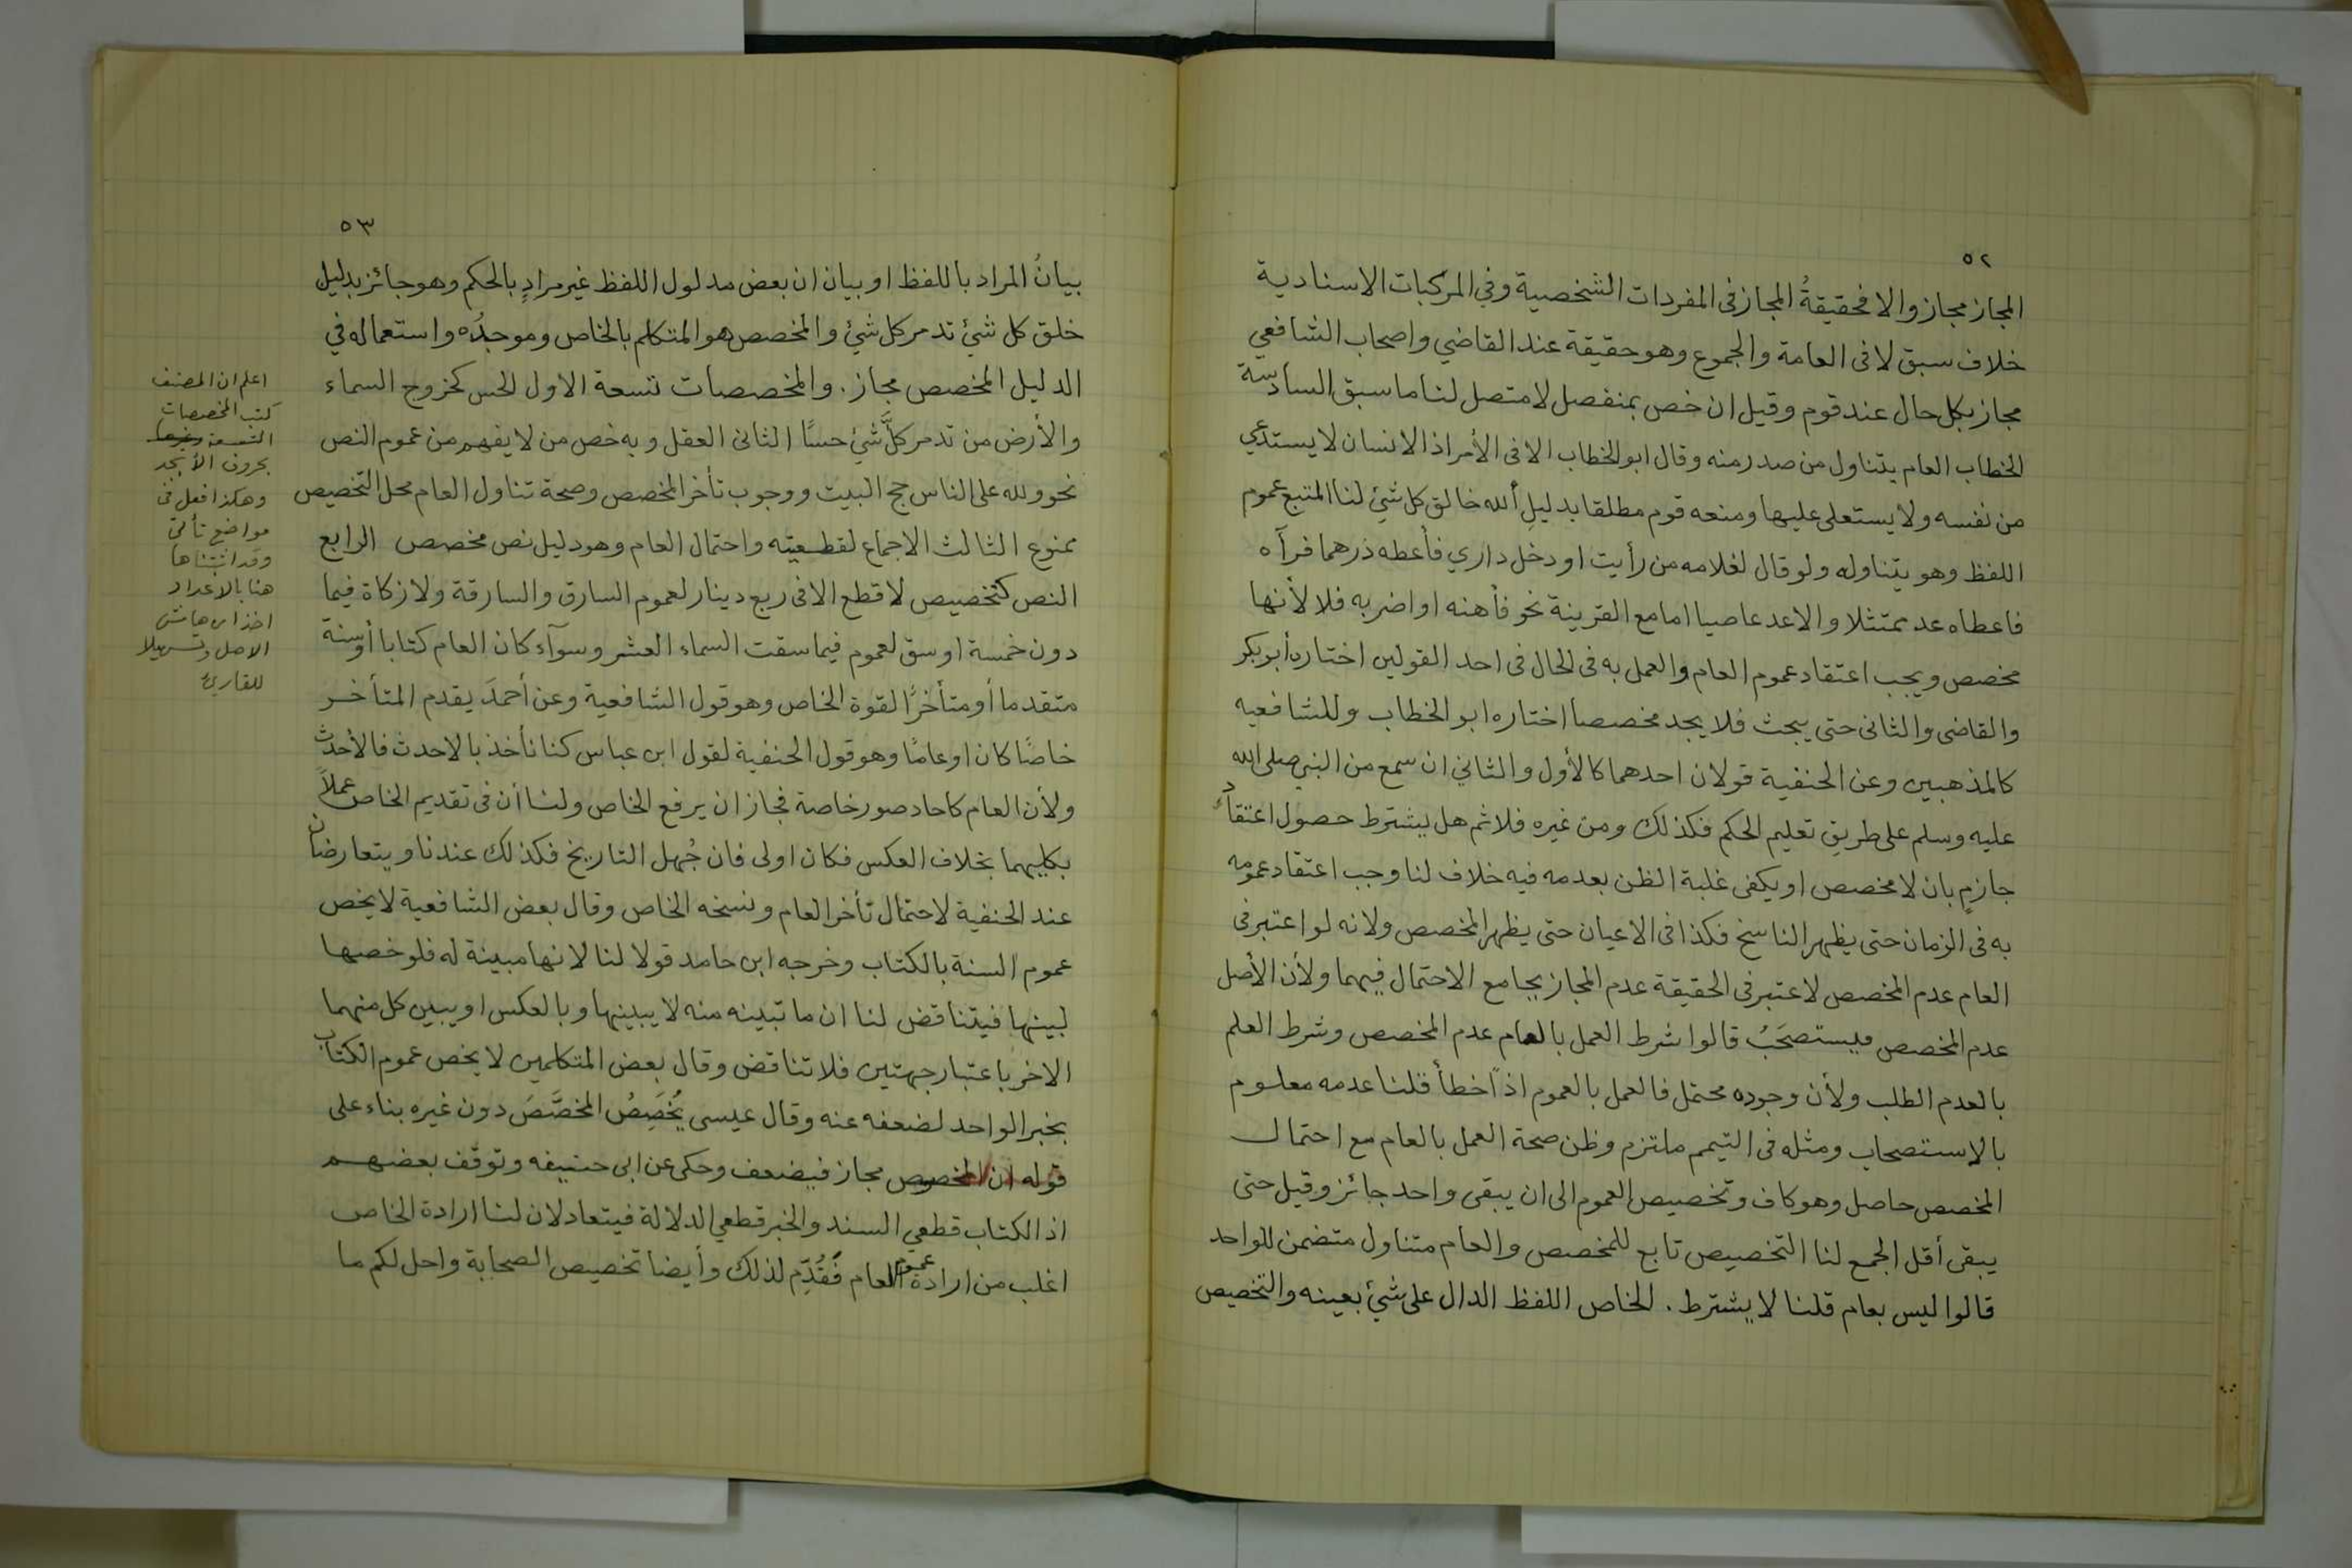 ٥٢
المجاز مجاز والا فحقيقةُ المجاز فى المفردات الشخصية وفي المركبات الاسنادية
خلاف سبق لا فى العامة والجموع وهو حقيقة عند القاضي واصحاب الشافعي
مجاز بكل حال عند قوم وقيل ان خص بمنفصل لا متصل لنا ما سبق السادسة
الخطاب العام يتناول من صدر منه وقال ابو الخطاب الا فى الأمر اذ الانسان لا يستدعي
من نفسه ولا يستعلى عليها ومنعه قوم مطلقا بدليلِ ألله خالق كل شئِ لنا المتبع عموم
اللفظ وهو يتناوله ولو قال لغلامه من رأيت او دخل داري فأعطه درهما فرآه
فاعطاه عد ممتثلا والا عد عاصيا اما مع القرينة نحو فأهنه او اضربه فلا لأنها
مخصص ويجب اعتقاد عموم العام والعمل به فى الحال فى احد القولين اختاره أبو بكر
والقاضى والثانى حتى يبحث فلا يجد مخصصا اختاره ابو الخطاب وللشافعيه
كالمذهبين وعن الحنفية قولان احدهما كالأول والثاني ان سمع من النبي صلى الله
عليه وسلم على طريق تعليم الحكم فكذلك ومن غيره فلا ثم هل يشترط حصول اعتقادٍ
جازمٍ بان لا مخصص او يكفى غلبة الظن بعدمه فيه خلاف لنا وجب اعتقاد عمومه
به فى الزمان حتى يظهر الناسخ فكذا فى الاعيان حتى يظهر المخصص ولانه لو اعتبر فى
العام عدم المخصص لاعتبر فى الحقيقة عدم المجاز بجامع الاحتمال فيهما ولأن الأصل
عدم المخصص فيستصحَبُ قالوا شرط العمل بالعام عدم المخصص وشرط العلم
بالعدم الطلب ولأن وجوده محتمل فالعمل بالعموم اذًا خطأ قلنا عدمه معلوم
بالاستصحاب ومثله فى التيمم ملتزم وظن صحة العمل بالعام مع احتمال
المخصص حاصل وهو كاف وتخصيص العموم الى ان يبقى واحد جائز وقيل حتى
يبقى أقل الجمع لنا التخصيص تابع للمخصص والعام متناول متضمن للواحد
قالوا ليس بعام قلنا لا يشترط . الخاص اللفظ الدال على شئ بعينه والتخصيص
٥٣
بيانُ المراد باللفظ او بيان ان بعض مدلول اللفظ غير مرادٍ بالحكم وهو جائز بدليل
خلق كل شئ تدمر كل شئ والمخصص هو المتكلم بالخاص وموجدُه واستعماله في
الدليل المخصص مجاز . والمخصصات تسعة الاول الحس كخروج السماء
والأرض من تدمر كلَّ شئٍ حسًا الثانى العقل وبه خص من لا يفهم من عموم النص
نحو ولله على الناس حج البيت ووجوب تأخر المخصص وصحة تناول العام محل التخصيص
ممنوع الثالث الاجماع لقطعيته واحتمال العام وهو دليل نص مخصص الرابع
النص كتخصيص لا قطع الا فى ربع دينار لعموم السارق والسارقة ولا زكاة فيما
دون خمسة اوسق لعموم فيما سقت السماء العشر وسوآء كان العام كتابا أوسنة
متقدما أو متأخرًا لقوة الخاص وهو قول الشافعية وعن أحمدَ يقدم المتأخر
خاصًا كان او عامًا وهو قول الحنفية لقول ابن عباس كنا نأخذ بالاحدث فالأحدث
ولأن العام كاحاد صور خاصة فجاز ان يرفع الخاص ولنا أن فى تقديم الخاص عملاً
بكليهما بخلاف العكس فكان اولى فان جُهل التاريخ فكذلك عندنا ويتعارضان
عند الحنفية لاحتمال تأخر العام ونسخه الخاص وقال بعض الشافعية لا يخص
عموم السنة بالكتاب وخرجه ابن حامد قولا لنا لانها مبينة له فلو خصها
لبينها فيتناقض لنا ان ما تبينه منه لا يبينها وبالعكس او يبين كل منهما
الاخر باعتبار جهتين فلا تناقض وقال بعض المتكلمين لا يخص عموم الكتاب
بخبر الواحد لضعفه عنه وقال عيسى يُخَصِصُ المخصَّصَ دون غيره بناء على
قوله ان المخصوص مجاز فيضعف وحكى عن ابى حنيفه وتوقف بعضهم
اذ الكتاب قطعي السند والخبر قطعي الدلالة فيتعادلان لنا ارادة الخاص
اغلب من ارادة عموم العام فَقُدِّم لذلك وأيضا تخصيص الصحابة واحل لكم ما
اعلم ان المصنف
كتب المخصصات
التسعة وغيرها
بحروف الأبجد
وهكذا فعل فى
مواضع تأتى
وقد اثبتناها
هنا بالاعداد
اخذا من هامش
الاصل وتسهيلا
للقارئ